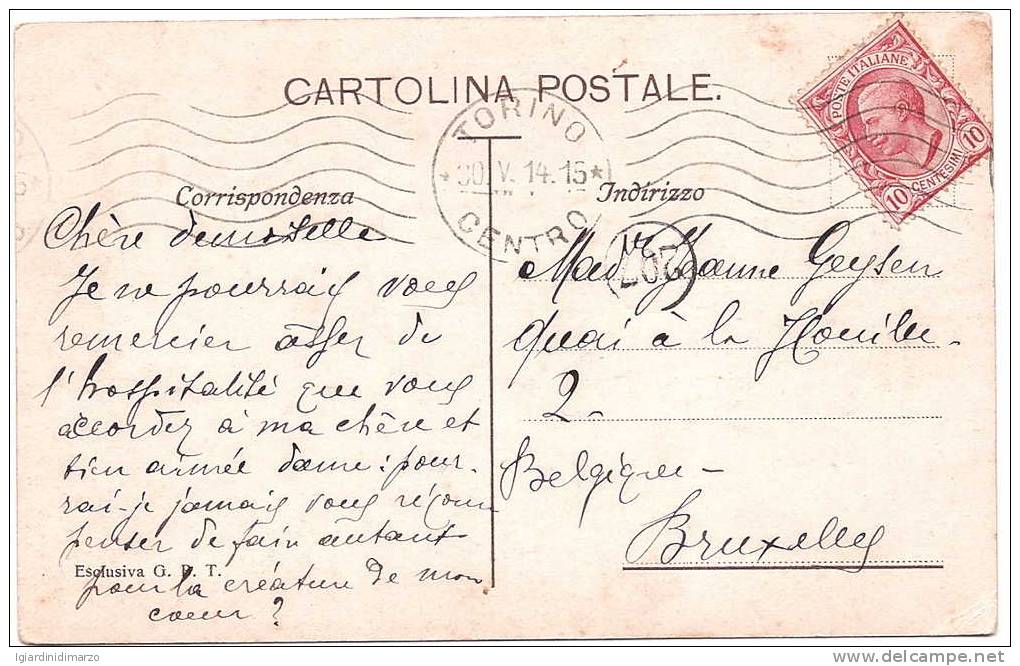 CARTOLINA POSTALE.
POSTE ITALIANE
10 CENTESIMI 10
TORINO
30.V.14.15
CENTRO
Corrispondenza
Chère demoiselle
Je ne pourrais vous
remercier asser de
l'hospitalité que vous
accordez à ma chère et
bien aimée dame: pour-
rai-je jamais vous récom
penser de fair autant
pour la créature de mon
coeur?
Esclusiva G. B. T.
Indirizzo
Jeanne Geysen
Quai à la Houille.
2-
Belgique-
Bruxelles
lgiardinidimarzo
delcampe.net